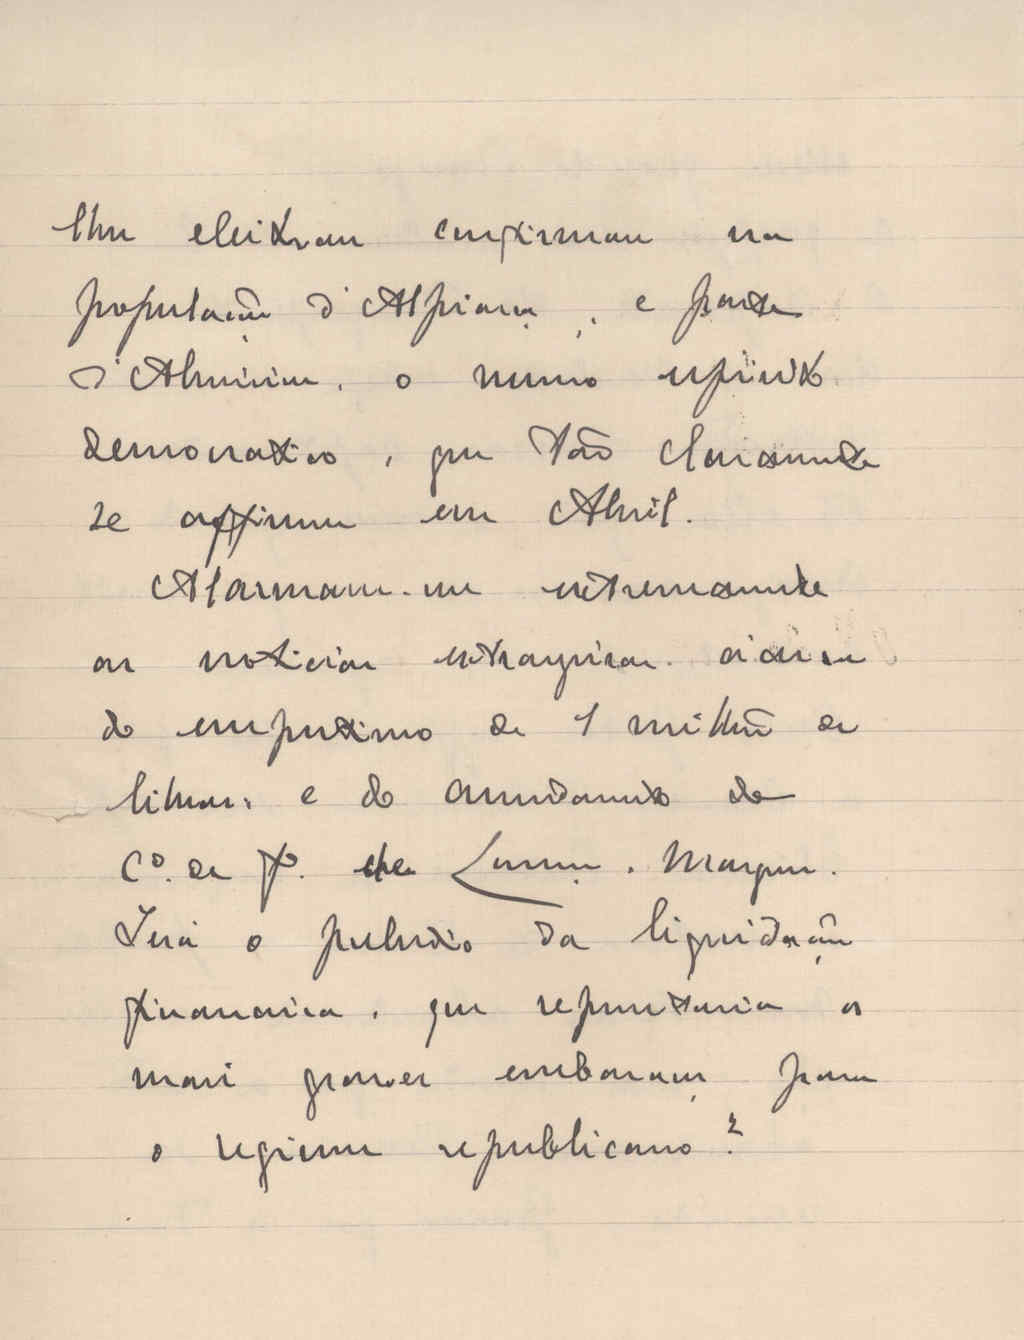 lhes eleitoraes confirmam na
população d'Alpiarça, e parte
d'Almeirim, o mesmo espirito
democratico, que tão claramente
se affirmou em Abril.
Alarmam-me extremamente
as noticias estrangeiras ácerca
do emprestimo de 1 milhão de
libras, e do arrendamento do
C.º de F.º de Lourenço Marques.
Será o preludio da liquidação
financeira, que representaria os
mais graves embaraços para
o regimen republicano?